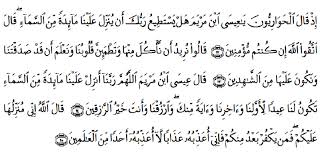 إِذْ قَالَ ٱلْحَوَارِيُّونَ يَٰعِيسَى ٱبْنَ مَرْيَمَ هَلْ يَسْتَطِيعُ رَبُّكَ أَن يُنَزِّلَ عَلَيْنَا مَآئِدَةً مِّنَ ٱلسَّمَآءِ ۖ قَالَ
ٱتَّقُوا۟ ٱللَّهَ إِن كُنتُم مُّؤْمِنِينَ ﴿١١٢﴾ قَالُوا۟ نُرِيدُ أَن نَّأْكُلَ مِنْهَا وَتَطْمَئِنَّ قُلُوبُنَا وَنَعْلَمَ أَن قَدْ صَدَقْتَنَا
وَنَكُونَ عَلَيْهَا مِنَ ٱلشَّٰهِدِينَ ﴿١١٣﴾ قَالَ عِيسَى ٱبْنُ مَرْيَمَ ٱللَّهُمَّ رَبَّنَآ أَنزِلْ عَلَيْنَا مَآئِدَةً مِّنَ ٱلسَّمَآءِ
تَكُونُ لَنَا عِيدًا لِّأَوَّلِنَا وَءَاخِرِنَا وَءَايَةً مِّنكَ ۖ وَٱرْزُقْنَا وَأَنتَ خَيْرُ ٱلرَّٰزِقِينَ ﴿١١٤﴾ قَالَ ٱللَّهُ إِنِّى مُنَزِّلُهَا
عَلَيْكُمْ ۖ فَمَن يَكْفُرْ بَعْدُ مِنكُمْ فَإِنِّىٓ أُعَذِّبُهُۥ عَذَابًا لَّآ أُعَذِّبُهُۥٓ أَحَدًا مِّنَ ٱلْعَٰلَمِينَ ﴿١١٥﴾